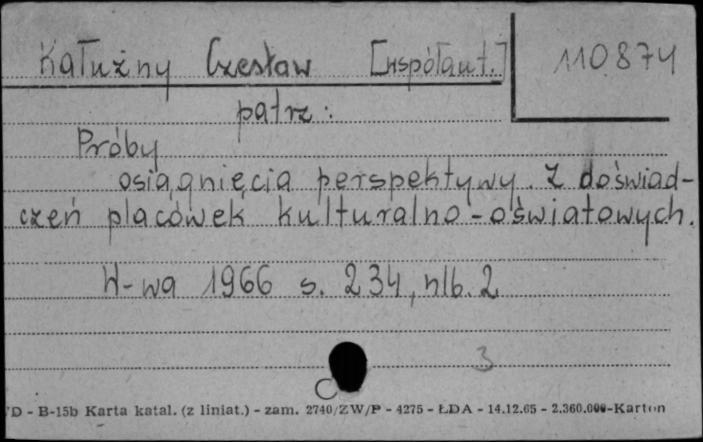 Kałużny Czesław [współaut.] 110874
patrz:
Próby
osiągnięcia perspektywy. Z doświad-
czeń placówek kulturalno-oświatowych.
W-wa 1966 s. 234, nlb. 2
3
C
D - B-15b Karta katal. (z liniat.) - zam. 2740/ZW/P - 4275 - ŁDA - 14.12.65 - 2.360.000-Karton